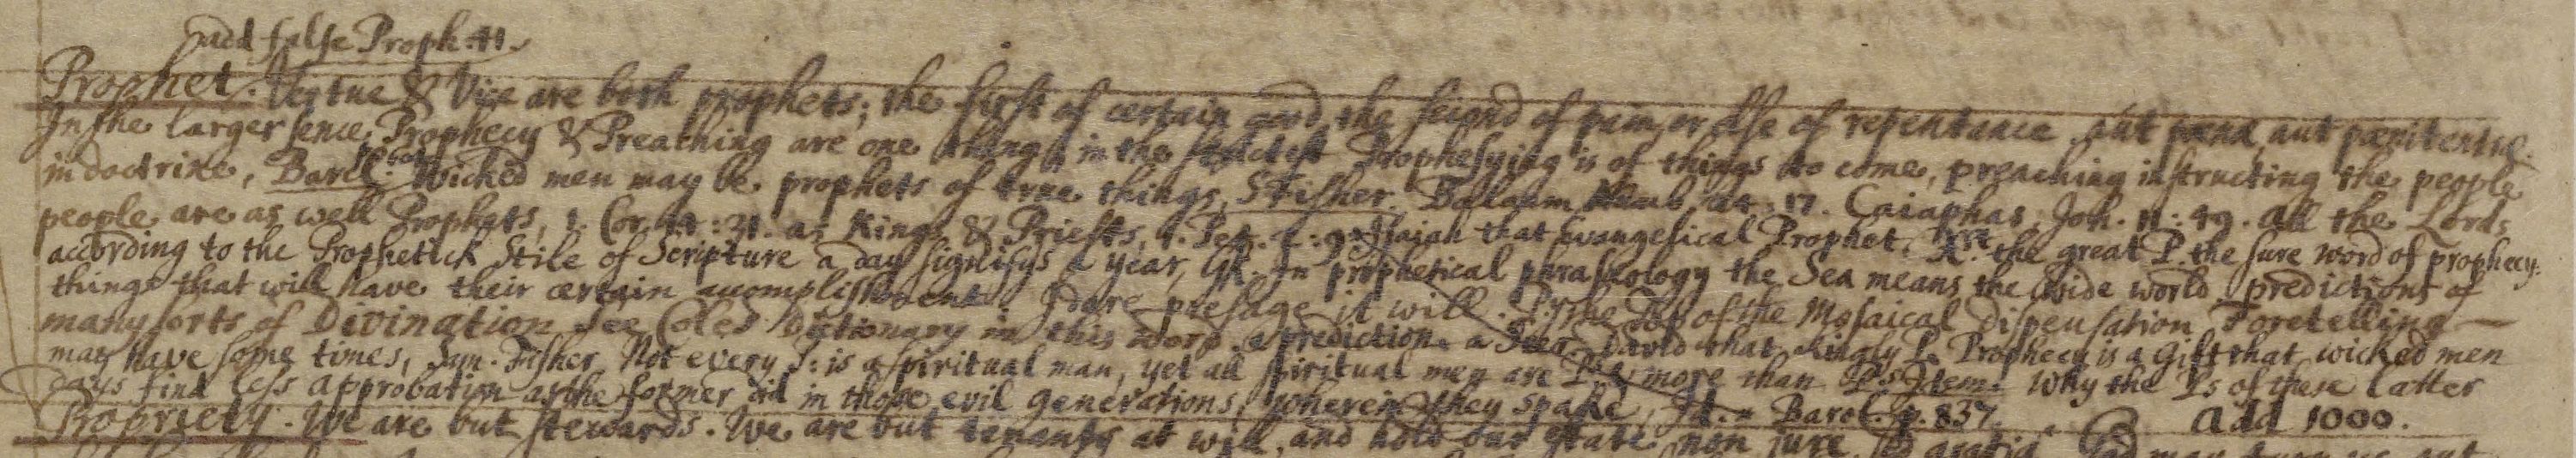 add false Proph. 41.
Prophet. Vertue & Vice are both prophets; the first of certain good, the second of pain, or else of repentance. aut pœna, aut pœnitentia.
In the larger sence, Prophecy & Preaching are one thing, in the strictest Prophesying is of things to come, preaching instructing the people
in doctrine, Barcl. Wicked men may be prophets of true things, S Fisher. Balaam Numb. 24: 17. Caiaphas, Joh. 11: 49. all the Lords
people are as well Prophets, 1. Cor. 14: 31. as Kings & Priests, 1. Pet. 2: 9. Isaiah that Evangelical Prophet. Xt. the great P. the sure word of prophecy.
according to the Prophetick Stile of Scripture a day signifys a year, GK. In prophetical phraseology the Sea means the wide world. predictions of
things that will have their certain accomplishment. I dare presage it will. the Top of the Mosaical dispensation. Foretelling —
many sorts of Divination. See Coles Dictionary in this word. a prediction. a Seer. David that Kingly P. Prophecy is a Gift that wicked men
may have some times, Sam. Fisher. Not every P. is a spiritual man, yet all spiritual men are more than Ps Idem. Why the Ps of these latter
days find less approbation as the former did in those evil generations, wherein they spake, Id. Barcl. p. 837. add 1000.
Propriety. We are but stewards. We are but tenants at will, and hold our state non jure, sed gratia. God may turn us out